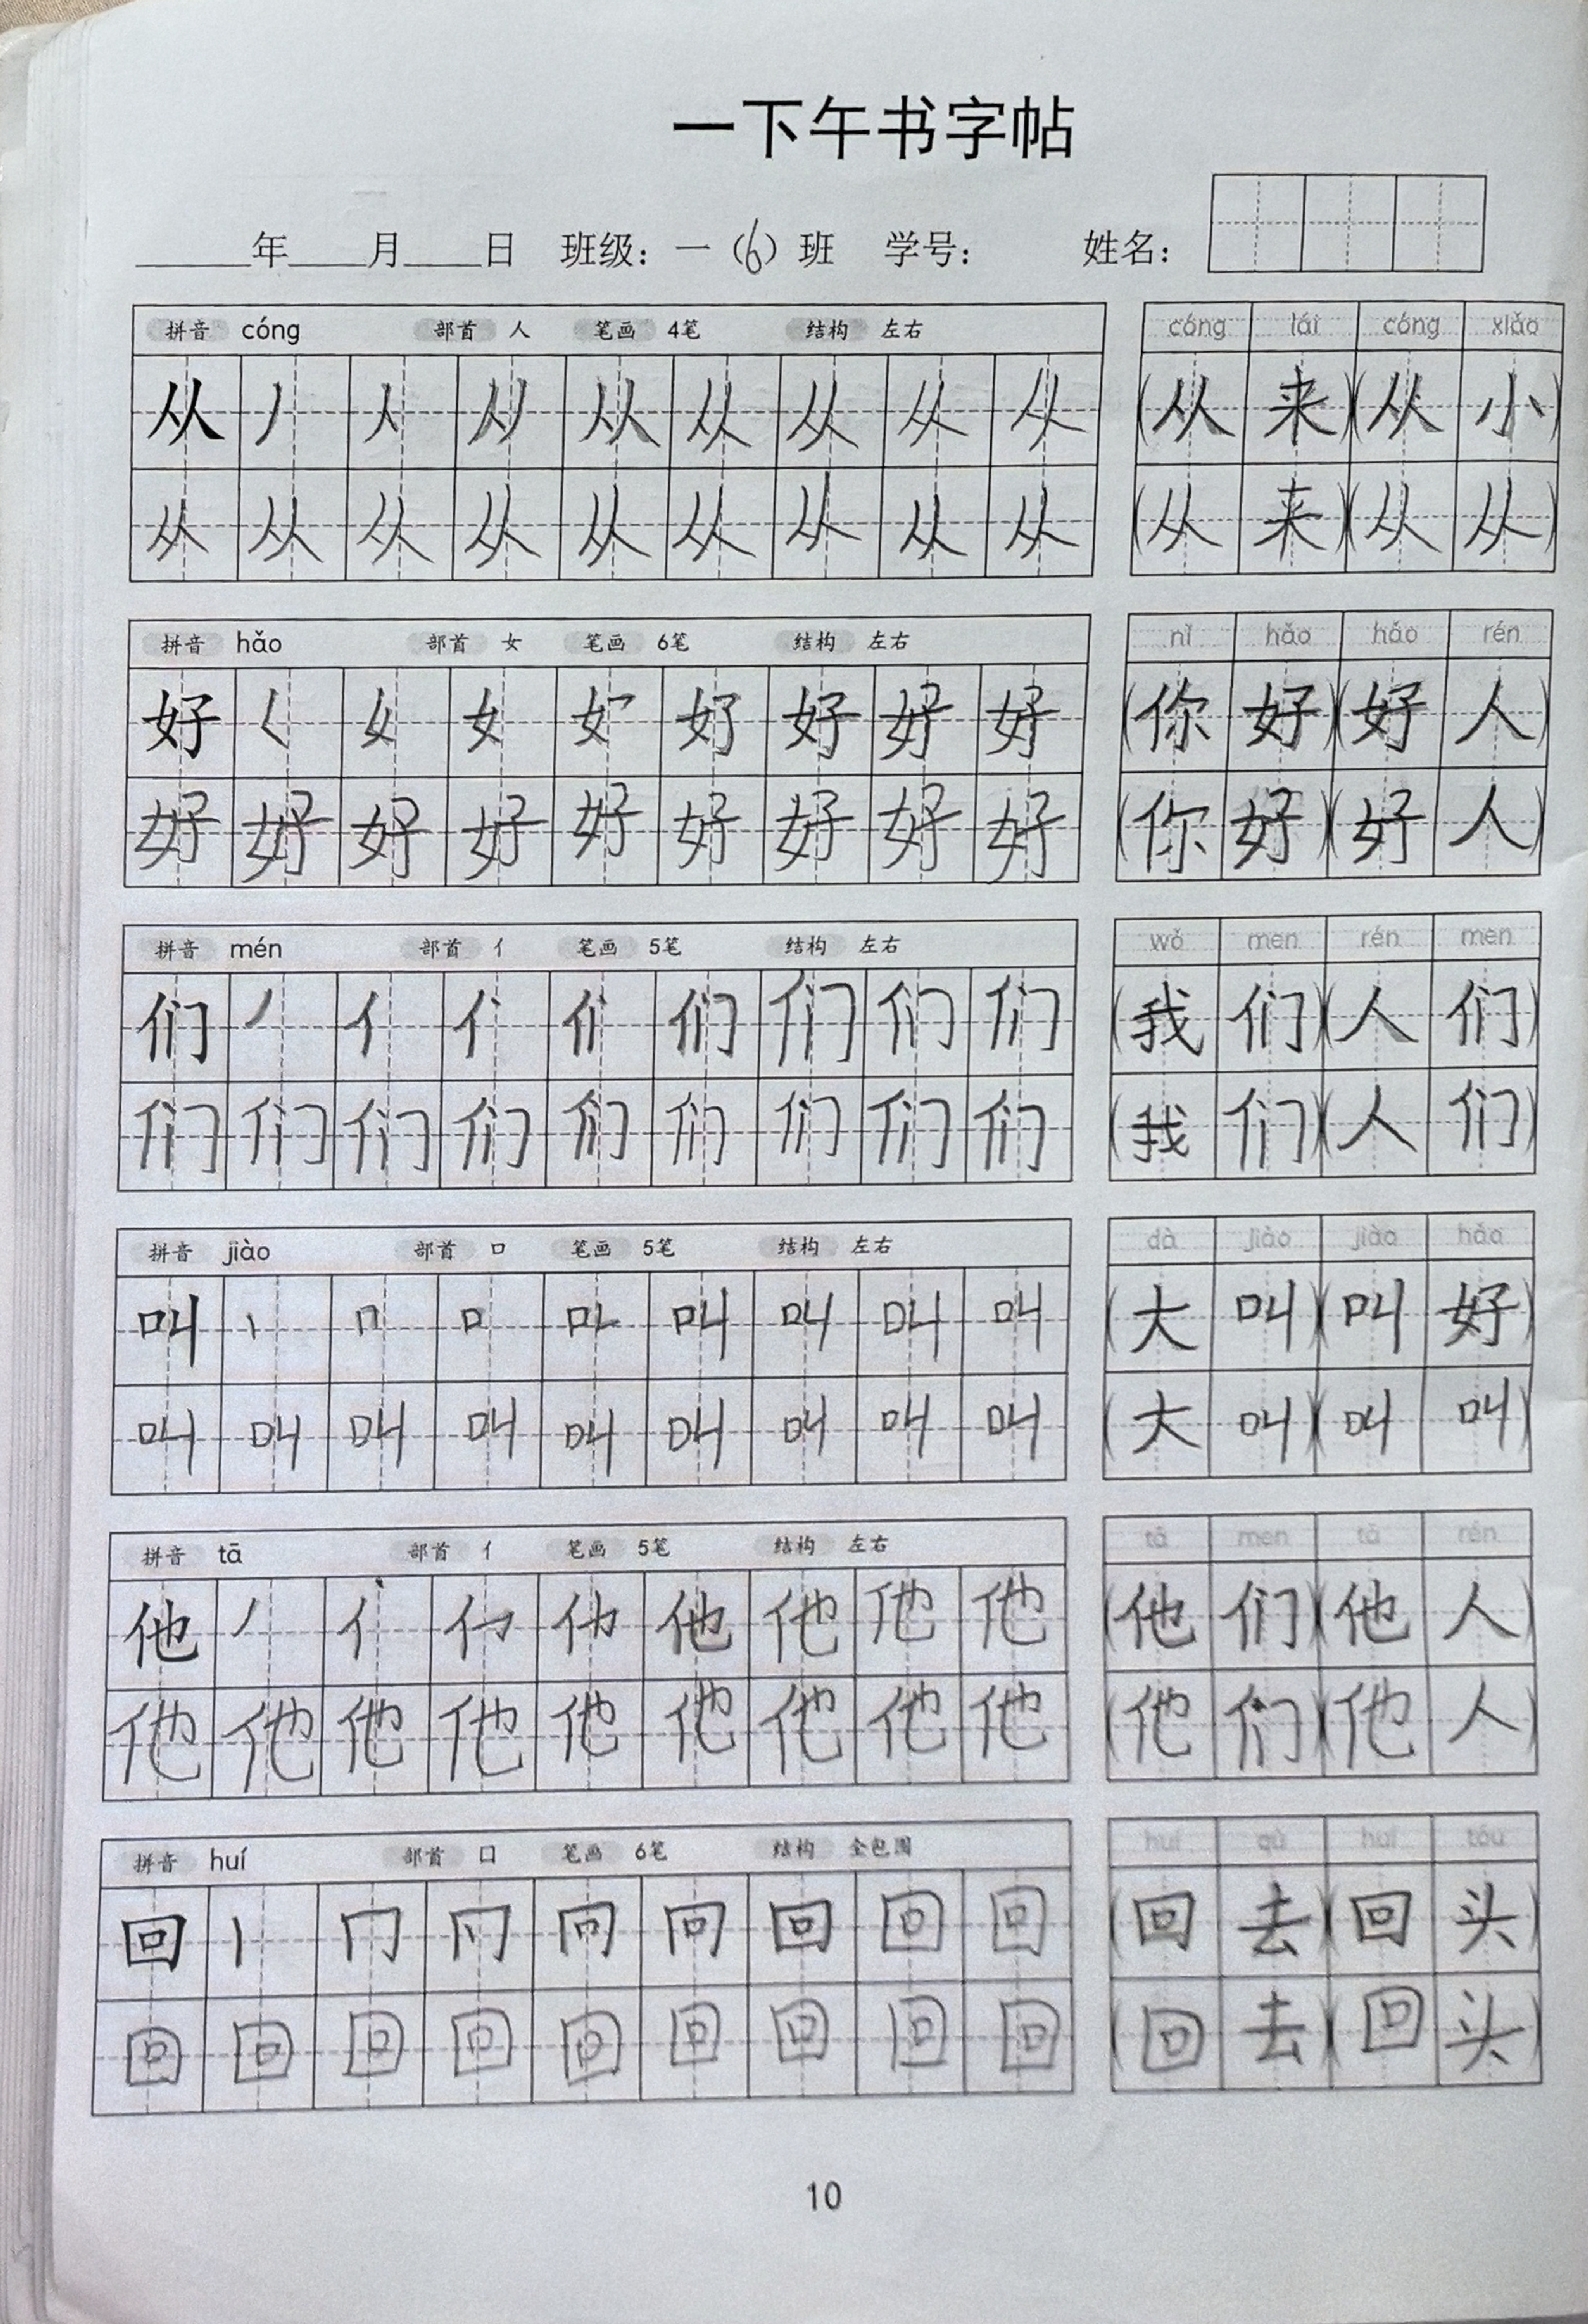 一下午书字帖
年 月 日 班级：一（6）班 学号： 姓名：
拼音 cóng 部首 人 笔画 4笔 结构 左右
从 丿 人 从 从 从 从 从
从 从 从 从 从 从 从 从 从
cóng lái cóng xiǎo
（从 来）（从 小）
（从 来）（从 从）
拼音 hǎo 部首 女 笔画 6笔 结构 左右
好 𡿨 女 女 好 好 好 好
好 好 好 好 好 好 好 好 好
nǐ hǎo hǎo rén
（你 好）（好 人）
（你 好）（好 人）
拼音 mén 部首 亻 笔画 5笔 结构 左右
们 丿 亻 们 们 们 们
们 们 们 们 们 们 们 们 们
wǒ men rén men
（我 们）（人 们）
（我 们）（人 们）
拼音 jiào 部首 口 笔画 5笔 结构 左右
叫 丨 冂 口 叫 叫 叫 叫
叫 叫 叫 叫 叫 叫 叫 叫 叫
dà jiào jiào hǎo
（大 叫）（叫 好）
（大 叫）（叫 叫）
拼音 tā 部首 亻 笔画 5笔 结构 左右
他 丿 亻 他 他 他 他
他 他 他 他 他 他 他 他 他
tā men tā rén
（他 们）（他 人）
（他 们）（他 人）
拼音 huí 部首 口 笔画 6笔 结构 全包围
回 丨 冂 回 回 回
回 回 回 回 回 回 回 回 回
huí qù huí tóu
（回 去）（回 头）
（回 去）（回 头）
10